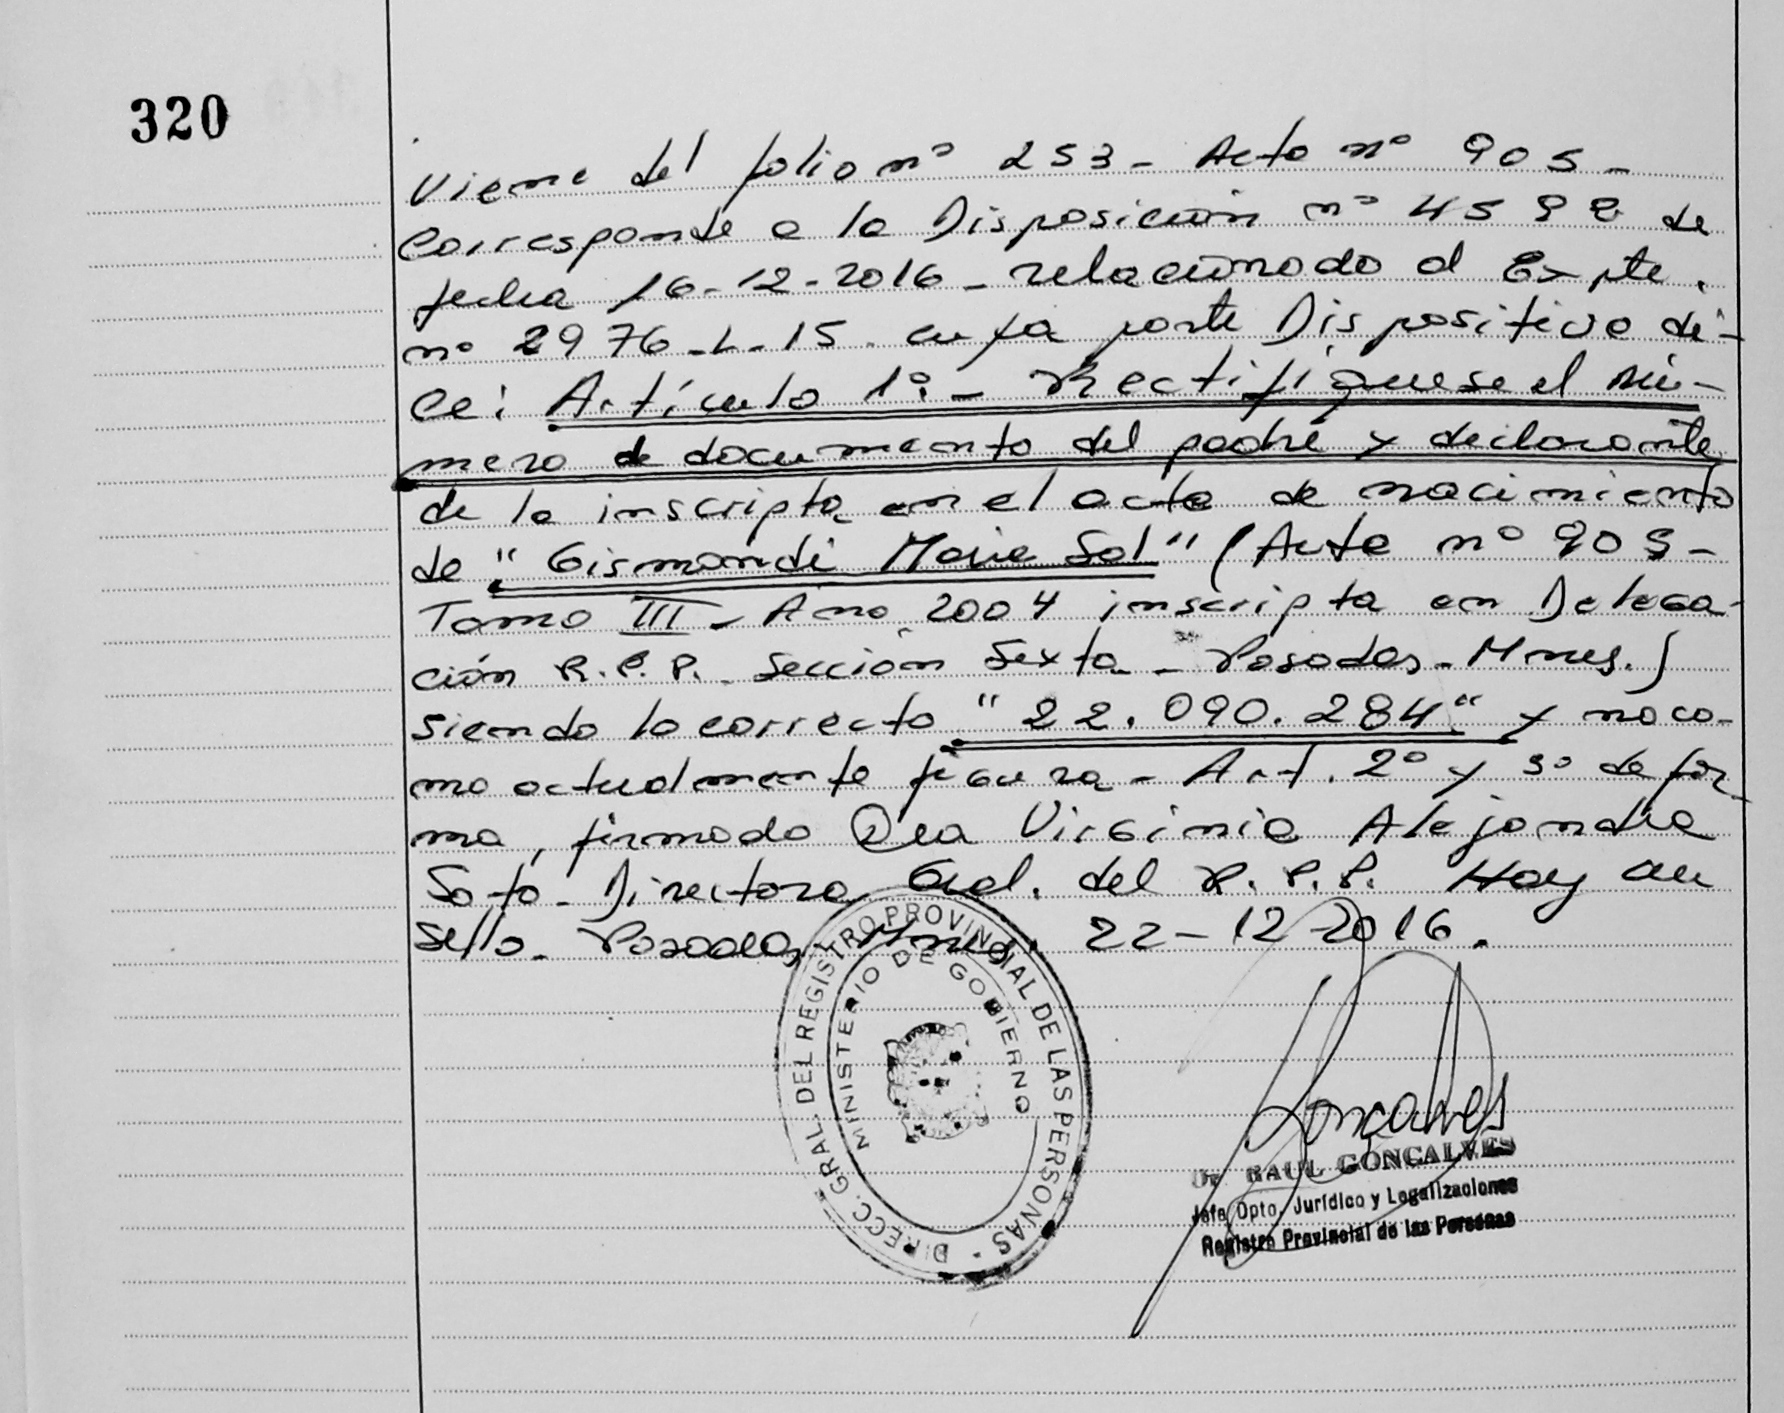 320
Viene del folio nº 253 - Acta nº 905 -
Corresponde a la Disposición nº 4592 de
fecha 16-12-2016 - relacionado al Expte.
nº 2976-L-15. cuya parte Dispositiva di-
ce: Artículo 1º: - Rectifíquese el Nú-
mero de documento del padre y declarante
de la inscripta en el acta de nacimiento
de "Gismondi Maria Sol" (Acta nº 905 -
Tomo III - Año 2004 inscripta en Delega-
ción R.P.P. Sección Sexta - Posadas - Mnes.)
siendo lo correcto "22.090.284" y no co-
mo actualmente figura - Art. 2º y 3º de for-
ma, firmado Dra Virginia Alejandra
Soto - Directora Gral. del R.P.P. Hay un
Sello - Posadas, Mnes, 22-12-2016.
DIRECC. GRAL. DEL REGISTRO PROVINCIAL DE LAS PERSONAS -
MINISTERIO DE GOBIERNO
Goncalves
Dr RAUL GONCALVES
Jefe Dpto. Jurídico y Legalizaciones
Registro Provincial de las Personas